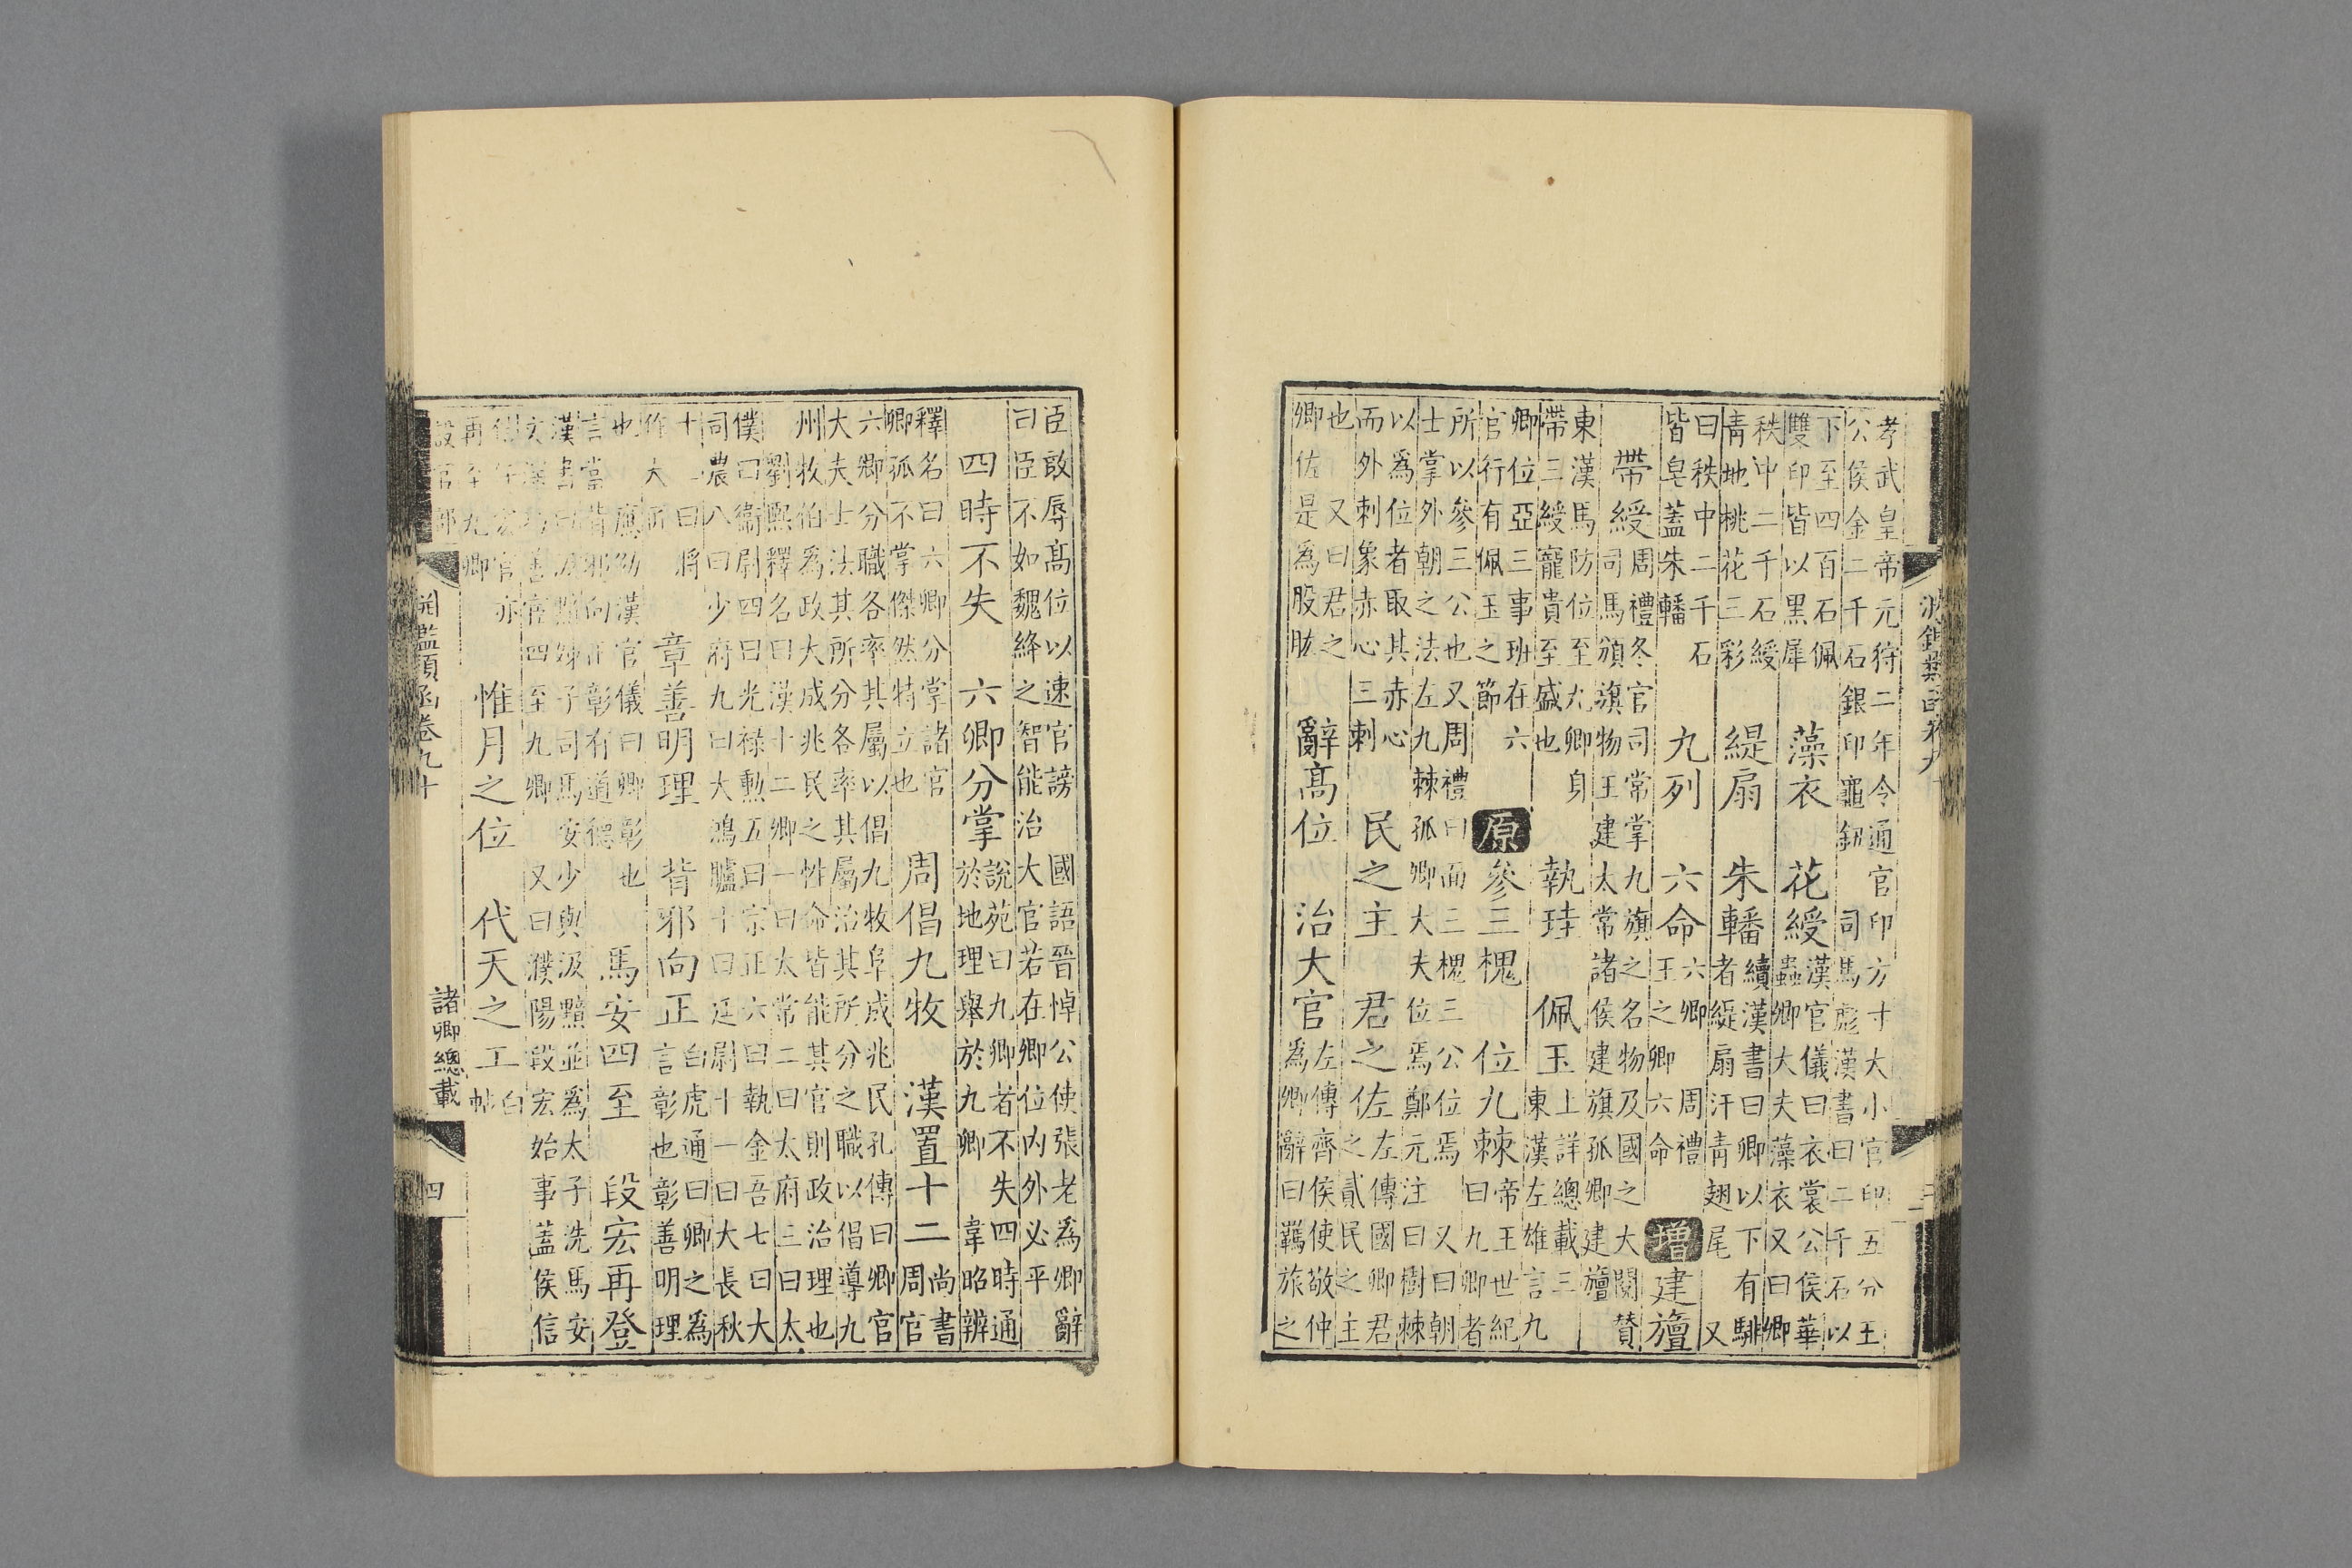 孝武皇帝元狩二年令通官印方寸大小官印五分王
公侯金二千石銀印龜鈕 司馬彪漢書曰二千石以
下至四百石佩
雙印皆以黑犀
藻衣 花綬
漢官儀曰衣裳公侯華
蟲卿大夫藻衣又曰卿
秩中二千石綬
青地桃花三彩
緹扇 朱轓
續漢書曰卿以下有騑
者緹扇汗青翅尾 又
曰秩中二千石
皆皂蓋朱轓
九列 六命
六卿 周禮
王之卿六命
增 建旜
帶綬
周禮冬官司常掌九旗之名物及國之大閱贊
司馬頒旗物王建太常諸侯建旗孤卿建旜
東漢馬防位至九卿身
帶三綬寵貴至盛也
執珪 佩玉
上詳總載三
東漢左雄言九
卿位亞三事班在六
官行有佩玉之節
原 參三槐 位九棘
帝王世紀
曰九卿者
所以參三公也又周禮曰面三槐三公位焉 又曰朝
士掌外朝之法左九棘孤卿大夫位焉鄭元注曰樹棘
以爲位者取其赤心
而外刺象赤心三刺
民之主 君之佐
左傳國卿君
之貳民之主
也 又曰君之
卿佐是爲股肱
辭高位 治大官
左傳齊侯使敬仲
爲卿辭曰羈旅之
臣敢辱高位以速官謗 國語晉悼公使張老爲卿辭
曰臣不如魏絳之智能治大官若在卿位內外必平
四時不失 六卿分掌
說苑曰九卿者不失四時通
於地理舉於九卿 韋昭辨
釋名曰六卿分掌諸官
卿孤不掌傑然特立也
周倡九牧 漢置十二
尚書
周官
六卿分職各率其屬以倡九牧阜成兆民孔傳曰卿官
大夫士法其所分各率其屬治其所分之職以倡導九
州牧伯爲政大成兆民之性命皆能其官則政治理也
劉熙釋名曰漢十二卿一曰太常二曰太府三曰太
僕曰衛尉四曰光祿勳五曰宗正六曰執金吾七曰大
司農八曰少府九曰大鴻臚十曰廷尉十一曰大長秋
十二曰將
作大匠
章善明理 背邪向正
白虎通曰卿之爲
言彰也彰善明理
也 應劭漢官儀曰卿彰也
言當背邪向正彰有道德
馬安四至 段宏再登
漢書曰汲黯姊子司馬安少與汲黯並爲太子洗馬安
文深巧善宦四至九卿 又曰濮陽段宏始事蓋侯信
任宏官亦
再至九卿
惟月之位 代天之工
白
帖
設官部
淵鑑類函卷九十
諸卿總載
四